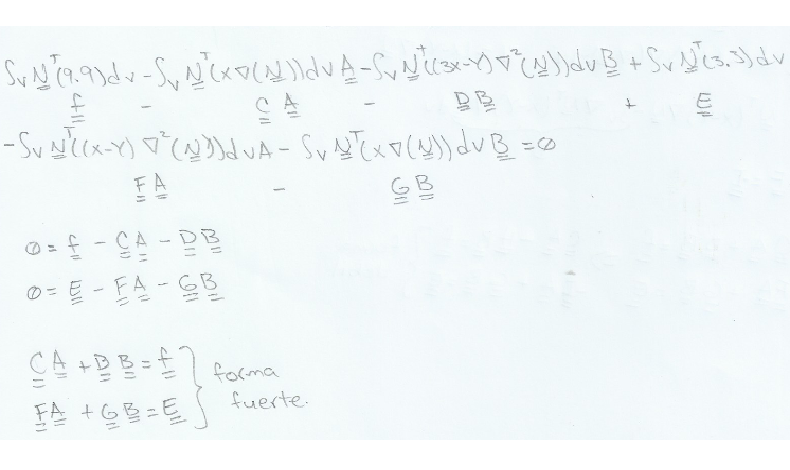 ∫v N^T(9.9)dv - ∫v N^T(x∇(N))dv A - ∫v N^T((3x-Y)∇²(N))dv B + ∫v N^T(3.3)dv
f - C A - D B + E
-∫v N^T((x-Y)∇²(N))dv A - ∫v N^T(x∇(N))dv B = 0
F A - G B
0 = f - C A - D B
0 = E - F A - G B
C A + D B = f } forma
F A + G B = E } fuerte.